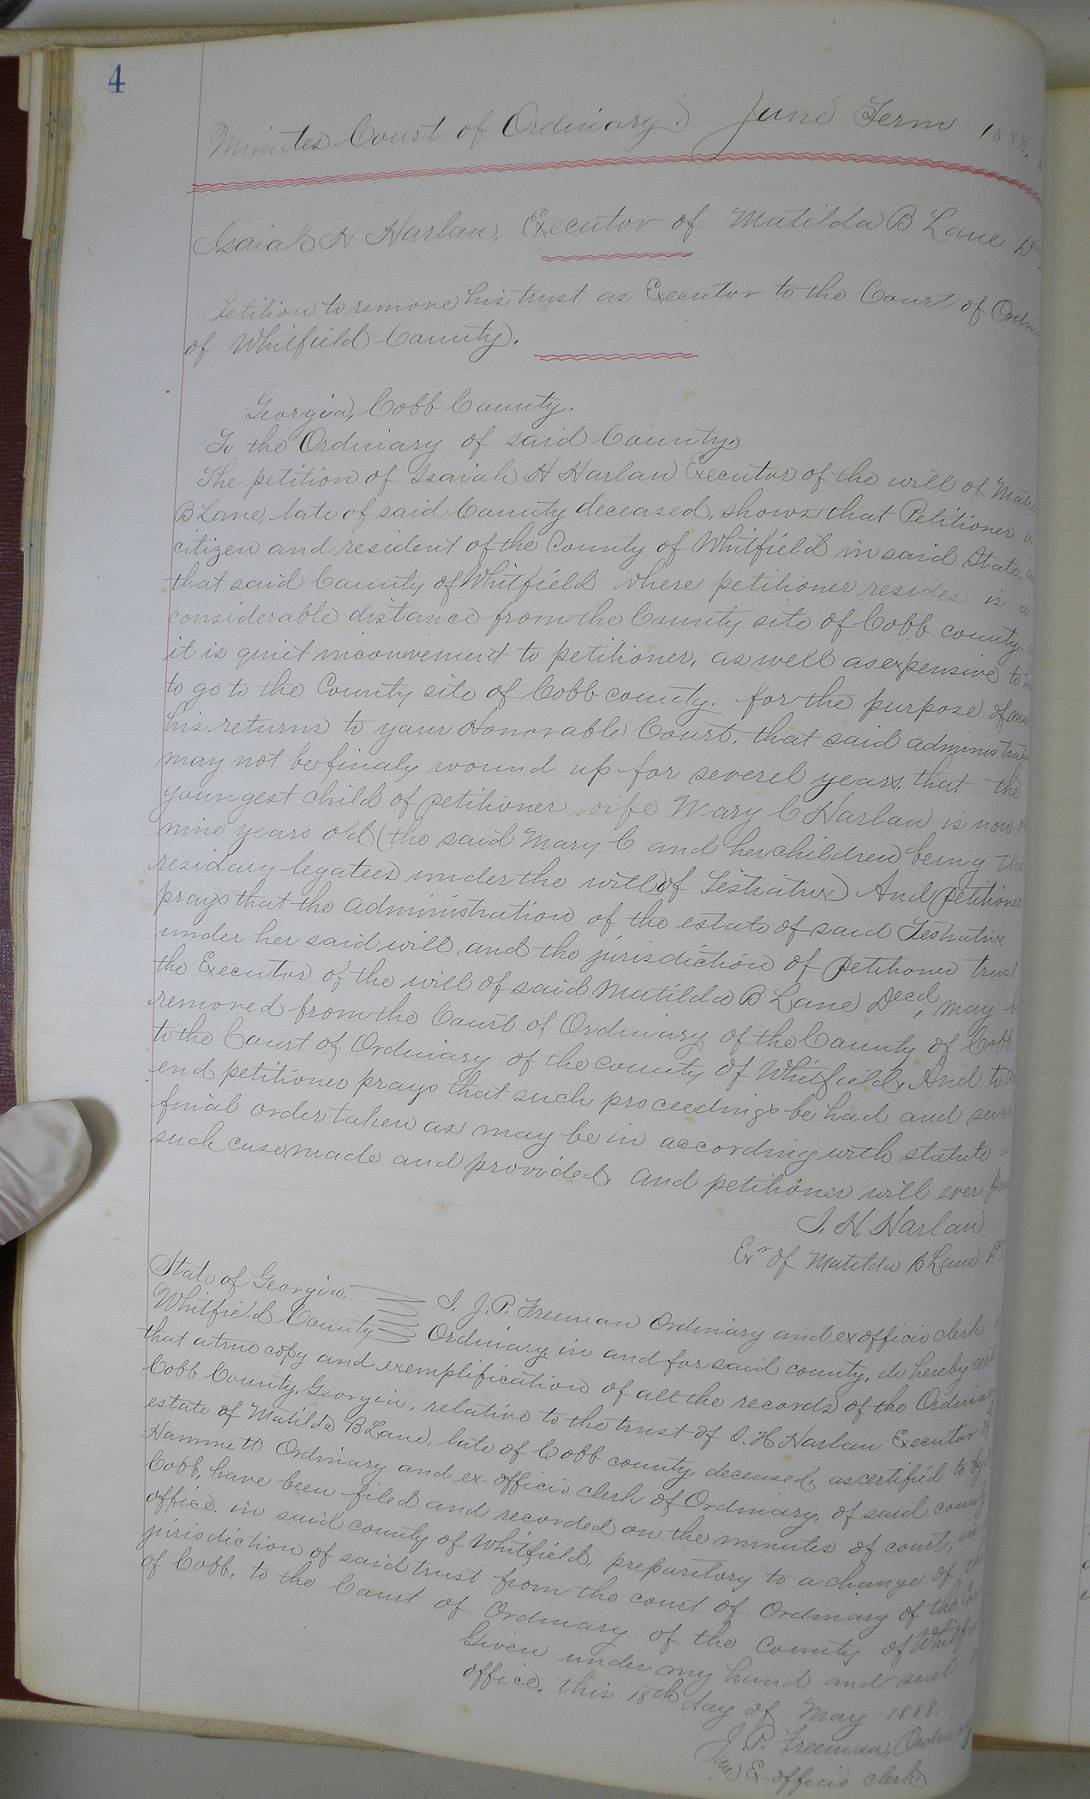 4
Minutes Court of Ordinary. June Term 1888.
Isaiah H Harlan, Executor of Matilda B Lane
Petition to remove his trust as Executor to the Court of
of Whitfield County.
Georgia, Cobb County.
To the Ordinary of said County.
The petition of Isaiah H Harlan Executor of the will of
B Lane, late of said County deceased, shows that Petitioner
citizen and resident of the County of Whitfield in said State,
that said County of Whitfield where petitioner resides is a
considerable distance from the County site of Cobb county,
it is quit inconvenient to petitioner, as well as expensive to
to go to the County site of Cobb county. for the purpose of
his returns to your Honorable Court. that said
may not be finaly wound up for severel years, that the
youngest child of petitioner wife Mary C Harlan is now
nine years old (the said Mary C and her children being the
residuary legatees under the will of Testatrix) And Petitioner
prays that the administration of the estate of said Testatrix
under her said will, and the jurisdiction of Petitioner trust
the Executor of the will of said Matilda B Lane Decd, may
removed from the Court of Ordinary of the County of Cobb
to the Court of Ordinary of the county of Whitfield, And to
end petitioner prays that such proceedings be had and such
final order taken as may be in according with statute
such case made and provided, and petitioner will ever
I. H. Harlan
Exr of Matilda B Lane
State of Georgia
Whitfield County
I. J. P. Freeman Ordinary and ex officio clerk
Ordinary in and for said county, do hereby
that a true copy and exemplification of all the records of the
Cobb County, Georgia, relative to the trust of I. H Harlan Executor of
estate of Matilda B Lane, late of Cobb county, deceased, as certified to by
Hammett Ordinary and ex-officio clerk of Ordinary, of said county
Cobb, have been filed and recorded on the minutes of court, in
office, in said county of Whitfield, preparitory to a change of
jurisdiction of said trust from the court of Ordinary of the
of Cobb, to the Court of Ordinary of the County of
Given under my hand and seal
office, this 18th day of May 1888.
J. P. Freeman, Ordinary
and Ex-officio clerk